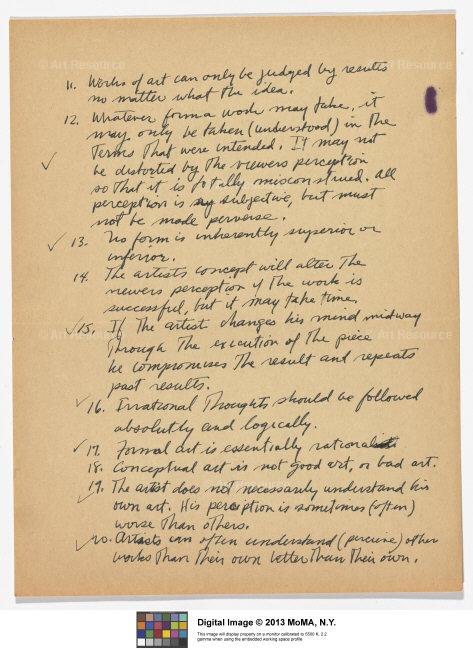 © Art Resource
© Art Resource
11. Works of art can only be judged by results
no matter what the idea.
12. Whatever form a work may take, it
may only be taken (understood) in the
terms that were intended. It may not
be distorted by the viewers perception
so that it is totally misconstrued. All
perception is subjective, but must
not be made perverse.
13. No form is inherently superior or
inferior.
14. The artists concept will alter the
viewers perception if the work is
successful, but it may take time.
15. If the artist changes his mind midway
through the execution of the piece
he compromises the result and repeats
past results.
16. Irrational thoughts should be followed
absolutely and logically.
17. Formal art is essentially rational
18. Conceptual art is not good art, or bad art.
19. The artist does not necessarily understand his
own art. His perception is sometimes (often)
worse than others.
20. Artists can often understand (perceive) other
works than their own better than their own.
Digital Image © 2013 MoMA, N.Y.
This image will display properly on a monitor calibrated to 6500 K, 2.2
gamma when using the embedded working space profile